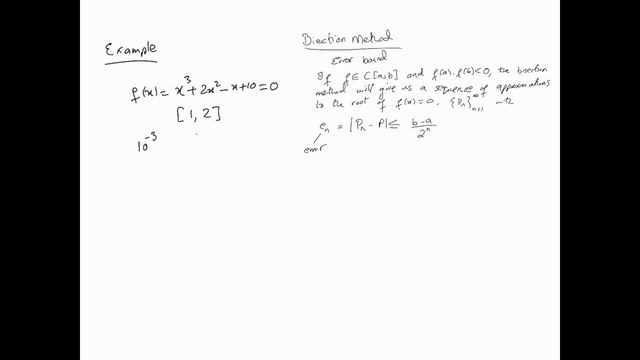 Example
f(x) = x³ + 2x² - x + 10 = 0
[1, 2]
10⁻³
Bisection Method
Error bound
If f ∈ C[a,b] and f(a).f(b)<0, the bisection
method will give us a sequence of approximations
to the root of f(x)=0, {Pₙ}ₙ₌₁^∞ with
eₙ = |Pₙ - P| ≤ (b-a)/2ⁿ
error